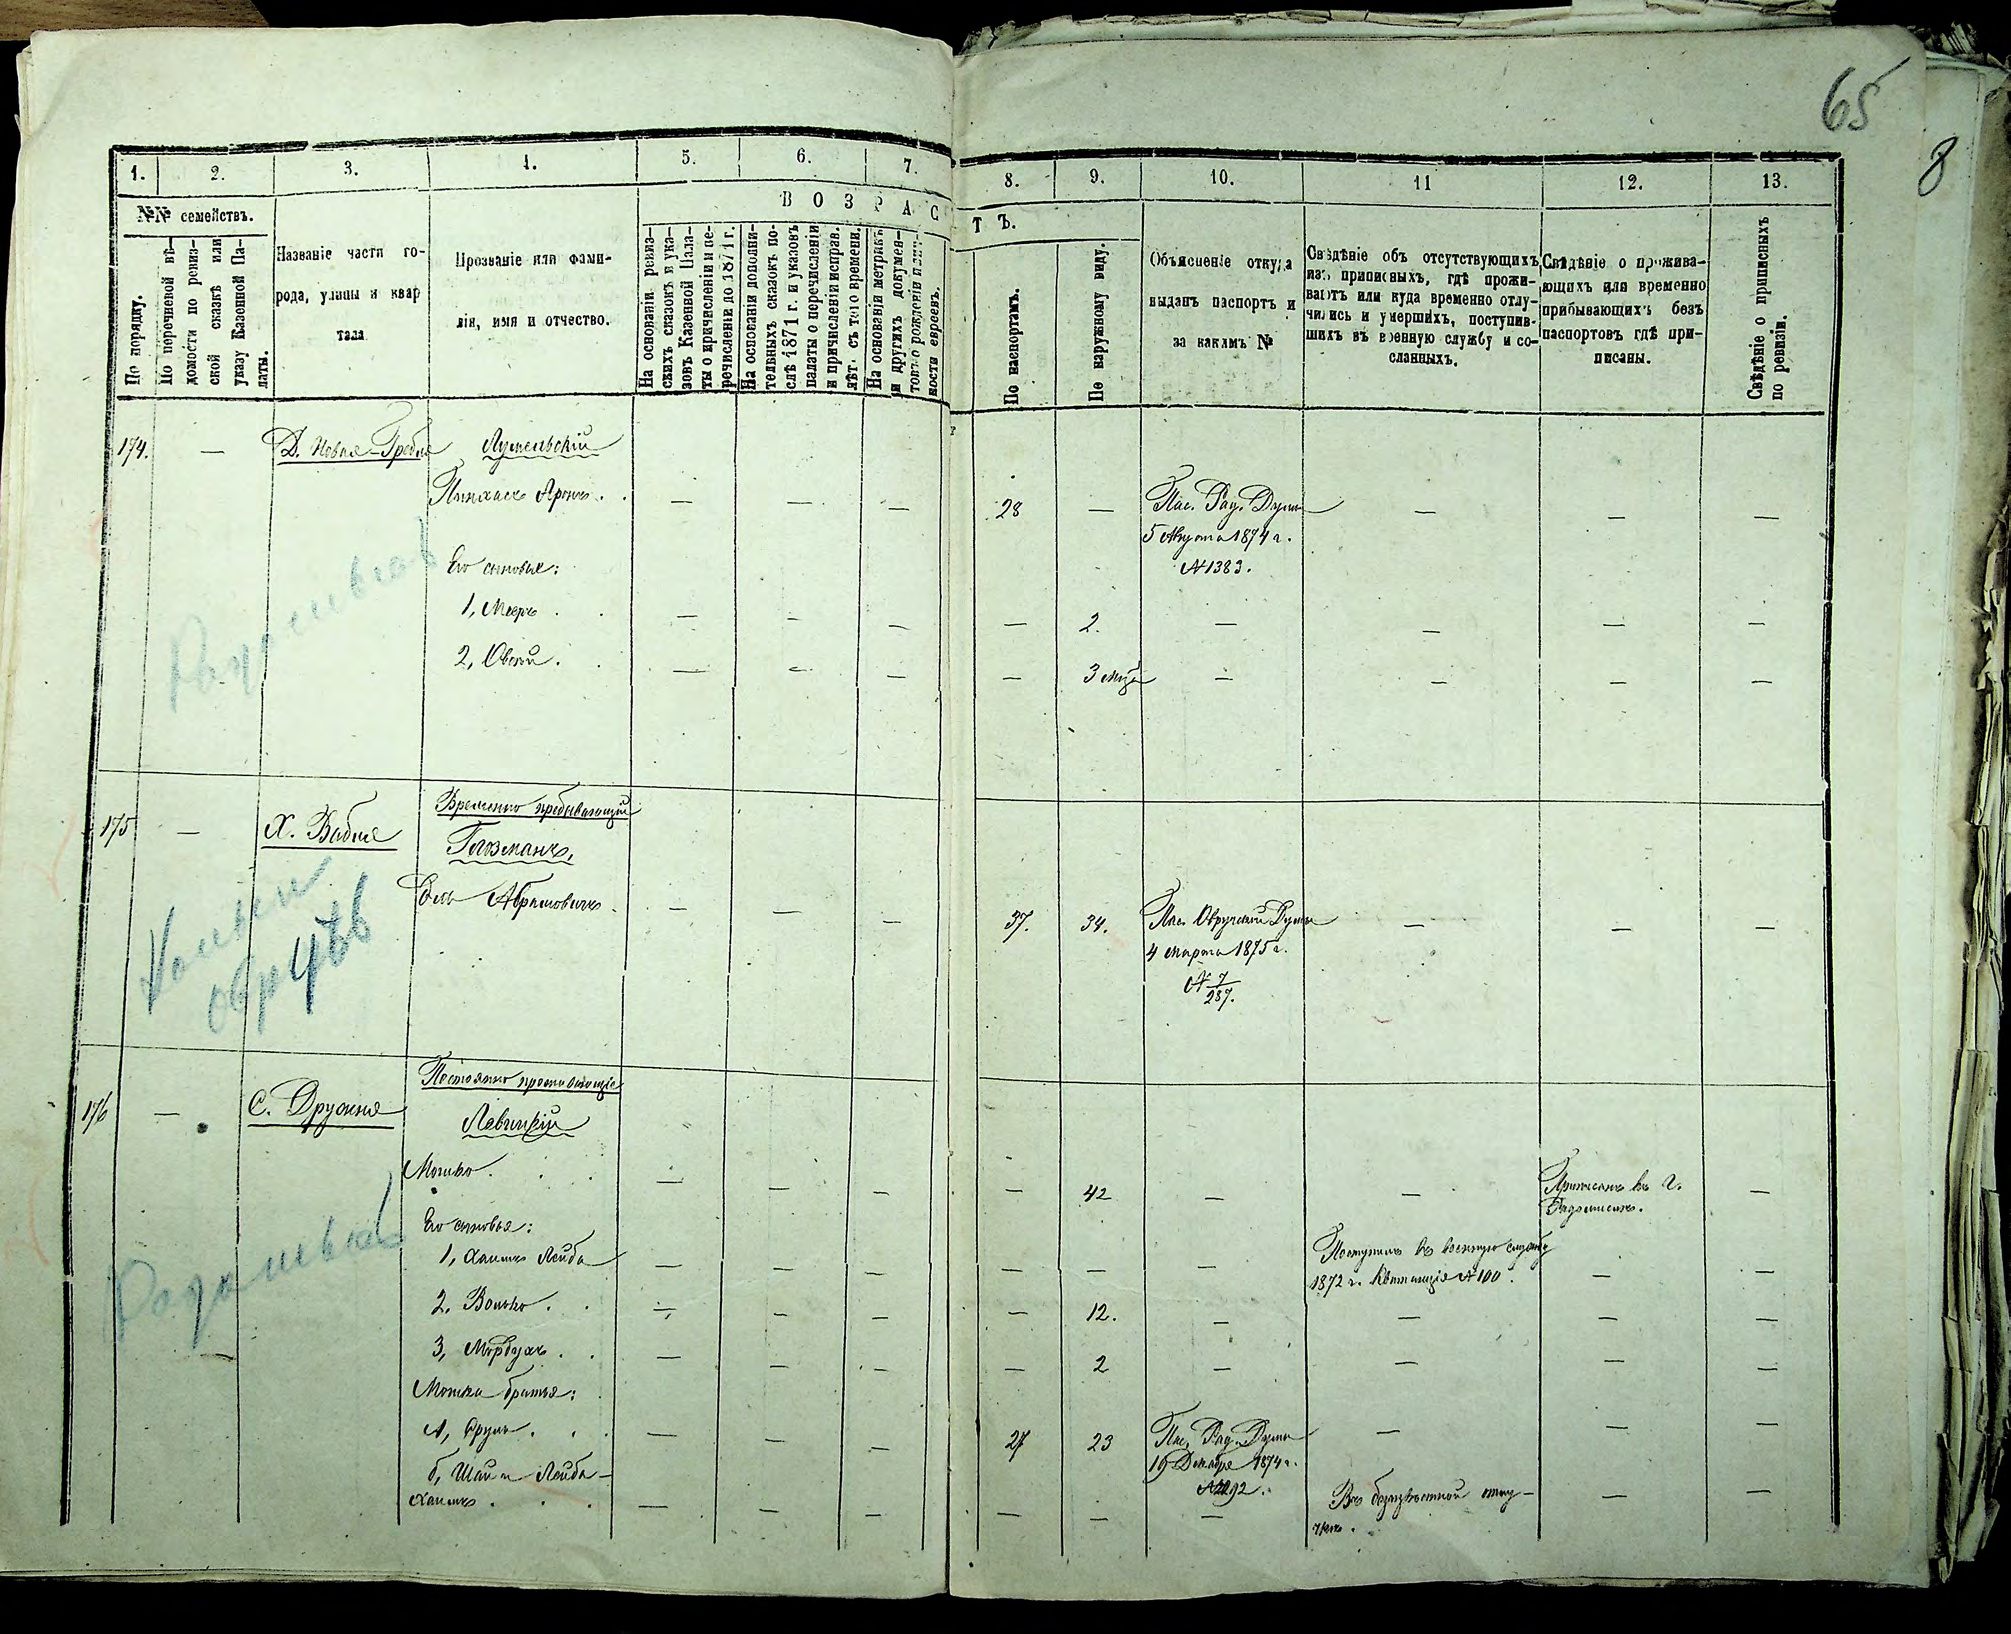 65
8
1.
2.
3.
4.
5.
6.
7.
8.
9.
10.
11
12.
13.
№№ семействъ.
В О З Р А С
Т Ъ.
По порядку.
По перечневой вѣ-
домости по ревиз-
ской сказкѣ или
указу Казенной Па-
латы.
Названіе части го-
рода, улицы и квар
тала
Прозваніе или фами-
лія, имя и отчество.
На основаніи ревиз-
скихъ сказокъ и ука-
зовъ Казенной Пала-
ты о причисленіи и пе-
речисленіи до 1871 г.
На основаніи дополни-
тельныхъ сказокъ по-
слѣ 1871 г. и указовъ
палаты о перечисленіи
и причисленіи исправ.
лѣт. съ того времени.
На основаніи метрикъ
и других документовъ
о рожденіи
ности евреевъ.
По паспортамъ.
По наружному виду.
Объясненіе откуда
выданъ паспортъ и
за какимъ №
Свѣдѣніе объ отсутствующихъ
изъ приписныхъ, гдѣ прожи-
ваютъ или куда временно отлу-
чились и умершихъ, поступив-
шихъ въ военную службу и со-
сланныхъ.
Свѣдѣніе о прожива-
ющихъ или временно
прибывающихъ безъ
паспортовъ гдѣ при-
писаны.
Свѣдѣніе о приписныхъ
по ревизіи.
174. — Д. Новая-Гребля
Пинхасъ Аронъ . . — — — 28 — Пас. Рад. Думы — — —
5 Августа 1874 г.
№ 1383.
Его сыновья:
1, Мееръ . . — — — — 2. — — — —
2, Овсей . . — — — — 3 мѣс — — — —
175 — Х. Бабия Временно пребывающій
Глозманъ,
Абрамовичъ . — — — 37. 34. Пас. Овручской Думы — — —
4 марта 1875 г.
№ 7/287.
176 — С. Друкня Постоянно проживающіе
Левицкій
Мошко . . . — — — — 42 — — Приписанъ въ г. —
Радомыслѣ.
Его сыновья:
1, Хаимъ Лейба — — — — — — Поступилъ въ военную службу — —
1872 г. Квитанція № 100.
2. Волько . . — — — — 12. — — — —
3, Мордухъ . . — — — — 2 — — — —
Мошка братья:
а, Сруль . . . — — — 27 23 Пас. Рад. Думы — — —
19 Декабря 1874 г.
б, Лейба-
Хаимъ . . . — — — — — — Въ безызвѣстной отлу- — —
чкѣ.